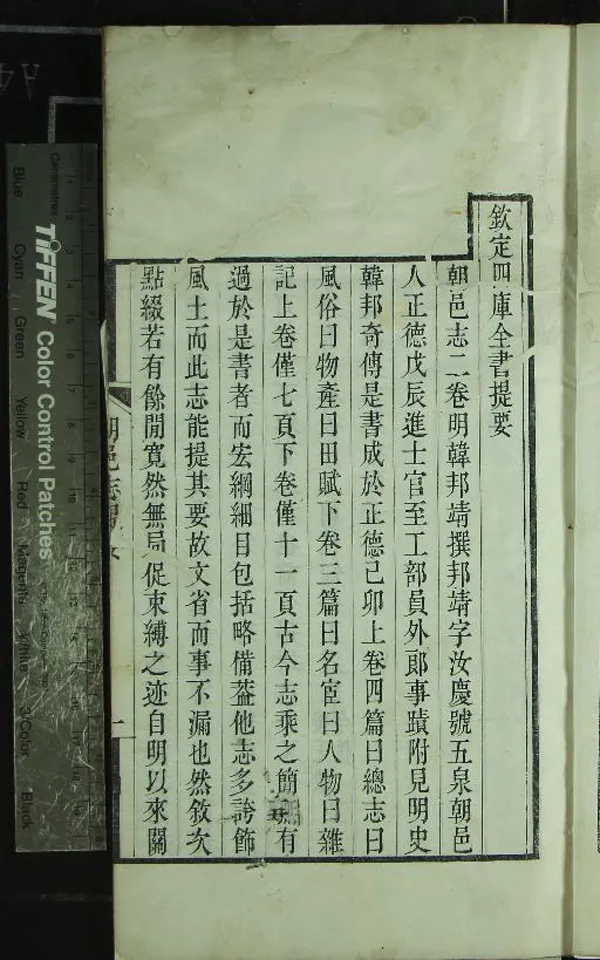 欽定四庫全書提要
朝邑志二卷明韓邦靖撰邦靖字汝慶號五泉朝邑
人正德戊辰進士官至工部員外郎事蹟附見明史
韓邦奇傳是書成於正德己卯上卷四篇曰總志曰
風俗曰物產曰田賦下卷三篇曰名宦曰人物曰雜
記上卷僅七頁下卷僅十一頁古今志乘之簡有
過於是書者而宏綱細目包括略備蓋他志多誇飾
風土而此志能提其要故文省而事不漏也然敘次
點綴若有餘閒寛然無局促束縛之迹自明以來關
一
Centimetres
TIFFEN Color Control Patches
Blue
Cyan
Green
Yellow
Red
Magenta
White
3/Color
Black
A4